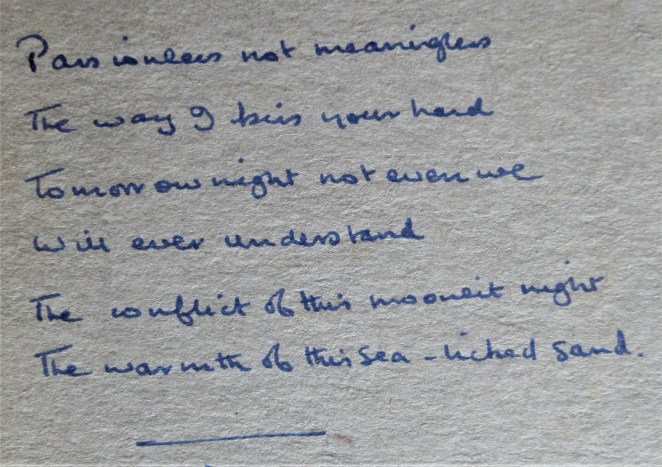 Passionless not meaningless
The way I kiss your hand
Tomorrow night not even we
Will ever understand
The conflict of this moonlit night
The warmth of this sea-licked sand.